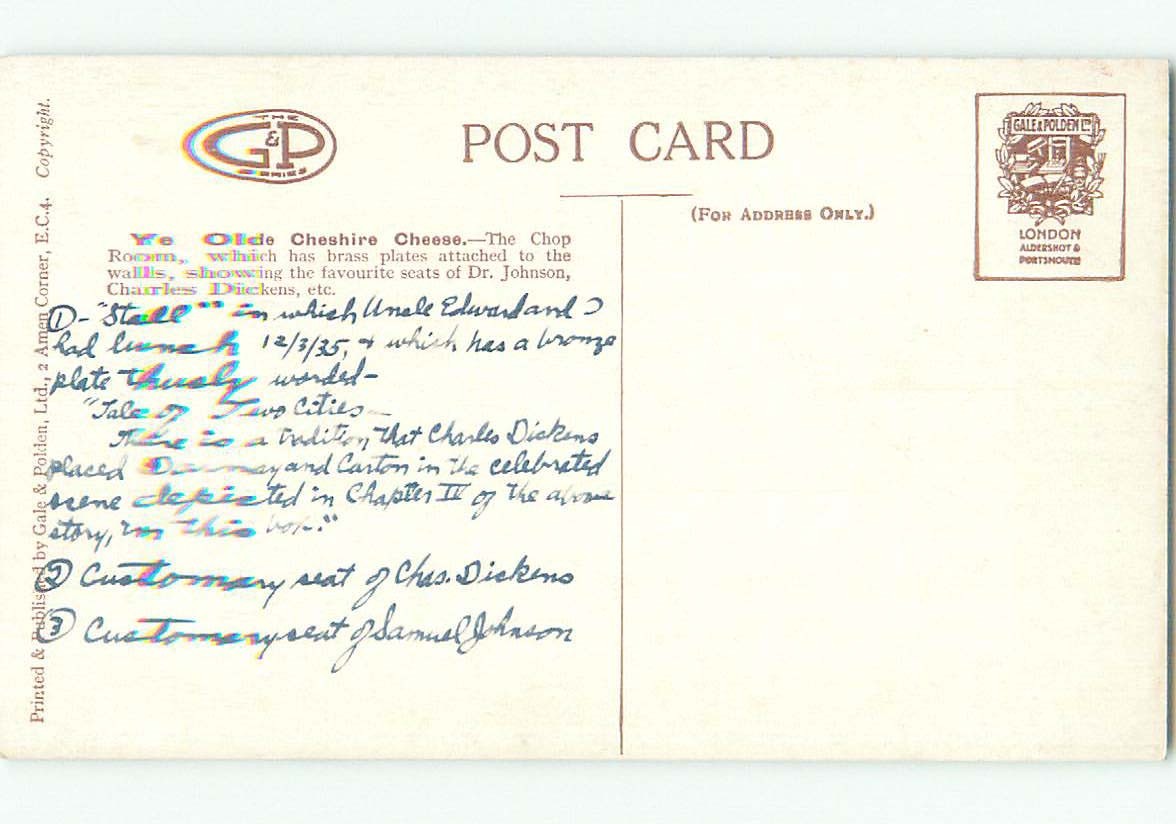 THE
G&P
SERIES
POST CARD
(FOR ADDRESS ONLY.)
GALE & POLDEN LTD
LONDON
ALDERSHOT &
PORTSMOUTH
Ye Olde Cheshire Cheese.—The Chop
Room, which has brass plates attached to the
walls, showing the favourite seats of Dr. Johnson,
Charles Dickens, etc.
① - "Stall" in which Uncle Edward and I
had lunch 12/3/35, & which has a bronze
plate thusly worded-
"Tale of Two Cities-
There is a tradition that Charles Dickens
placed Darnay and Carton in the celebrated
scene depicted in Chapter IV of the above
story, in this box."
② Customary seat of Chas. Dickens
③ Customary seat of Samuel Johnson
Printed & Published by Gale & Polden, Ltd., 2 Amen Corner, E.C.4. Copyright.